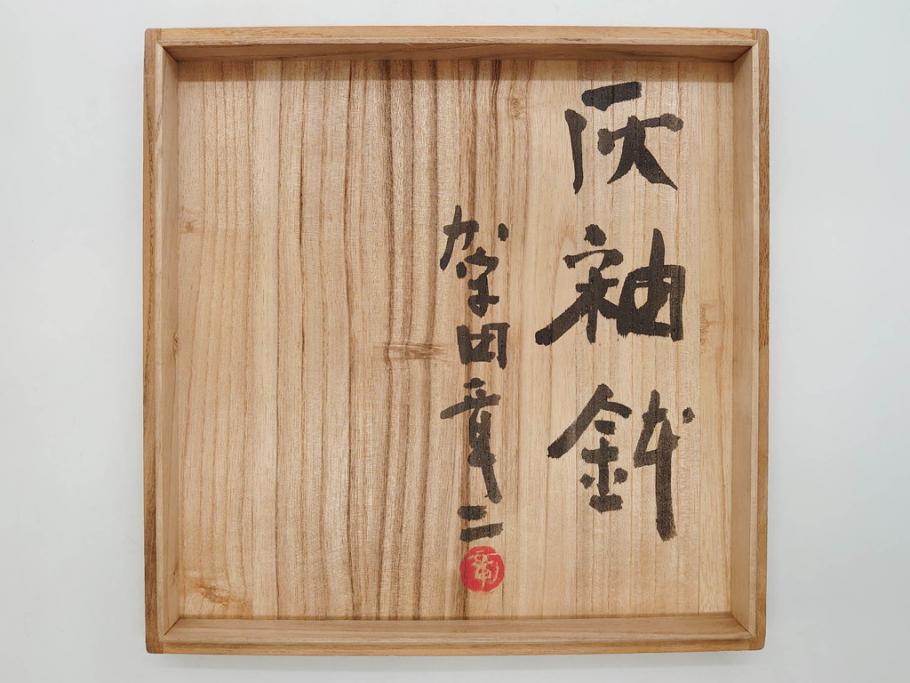 灰釉鉢
加守田章二